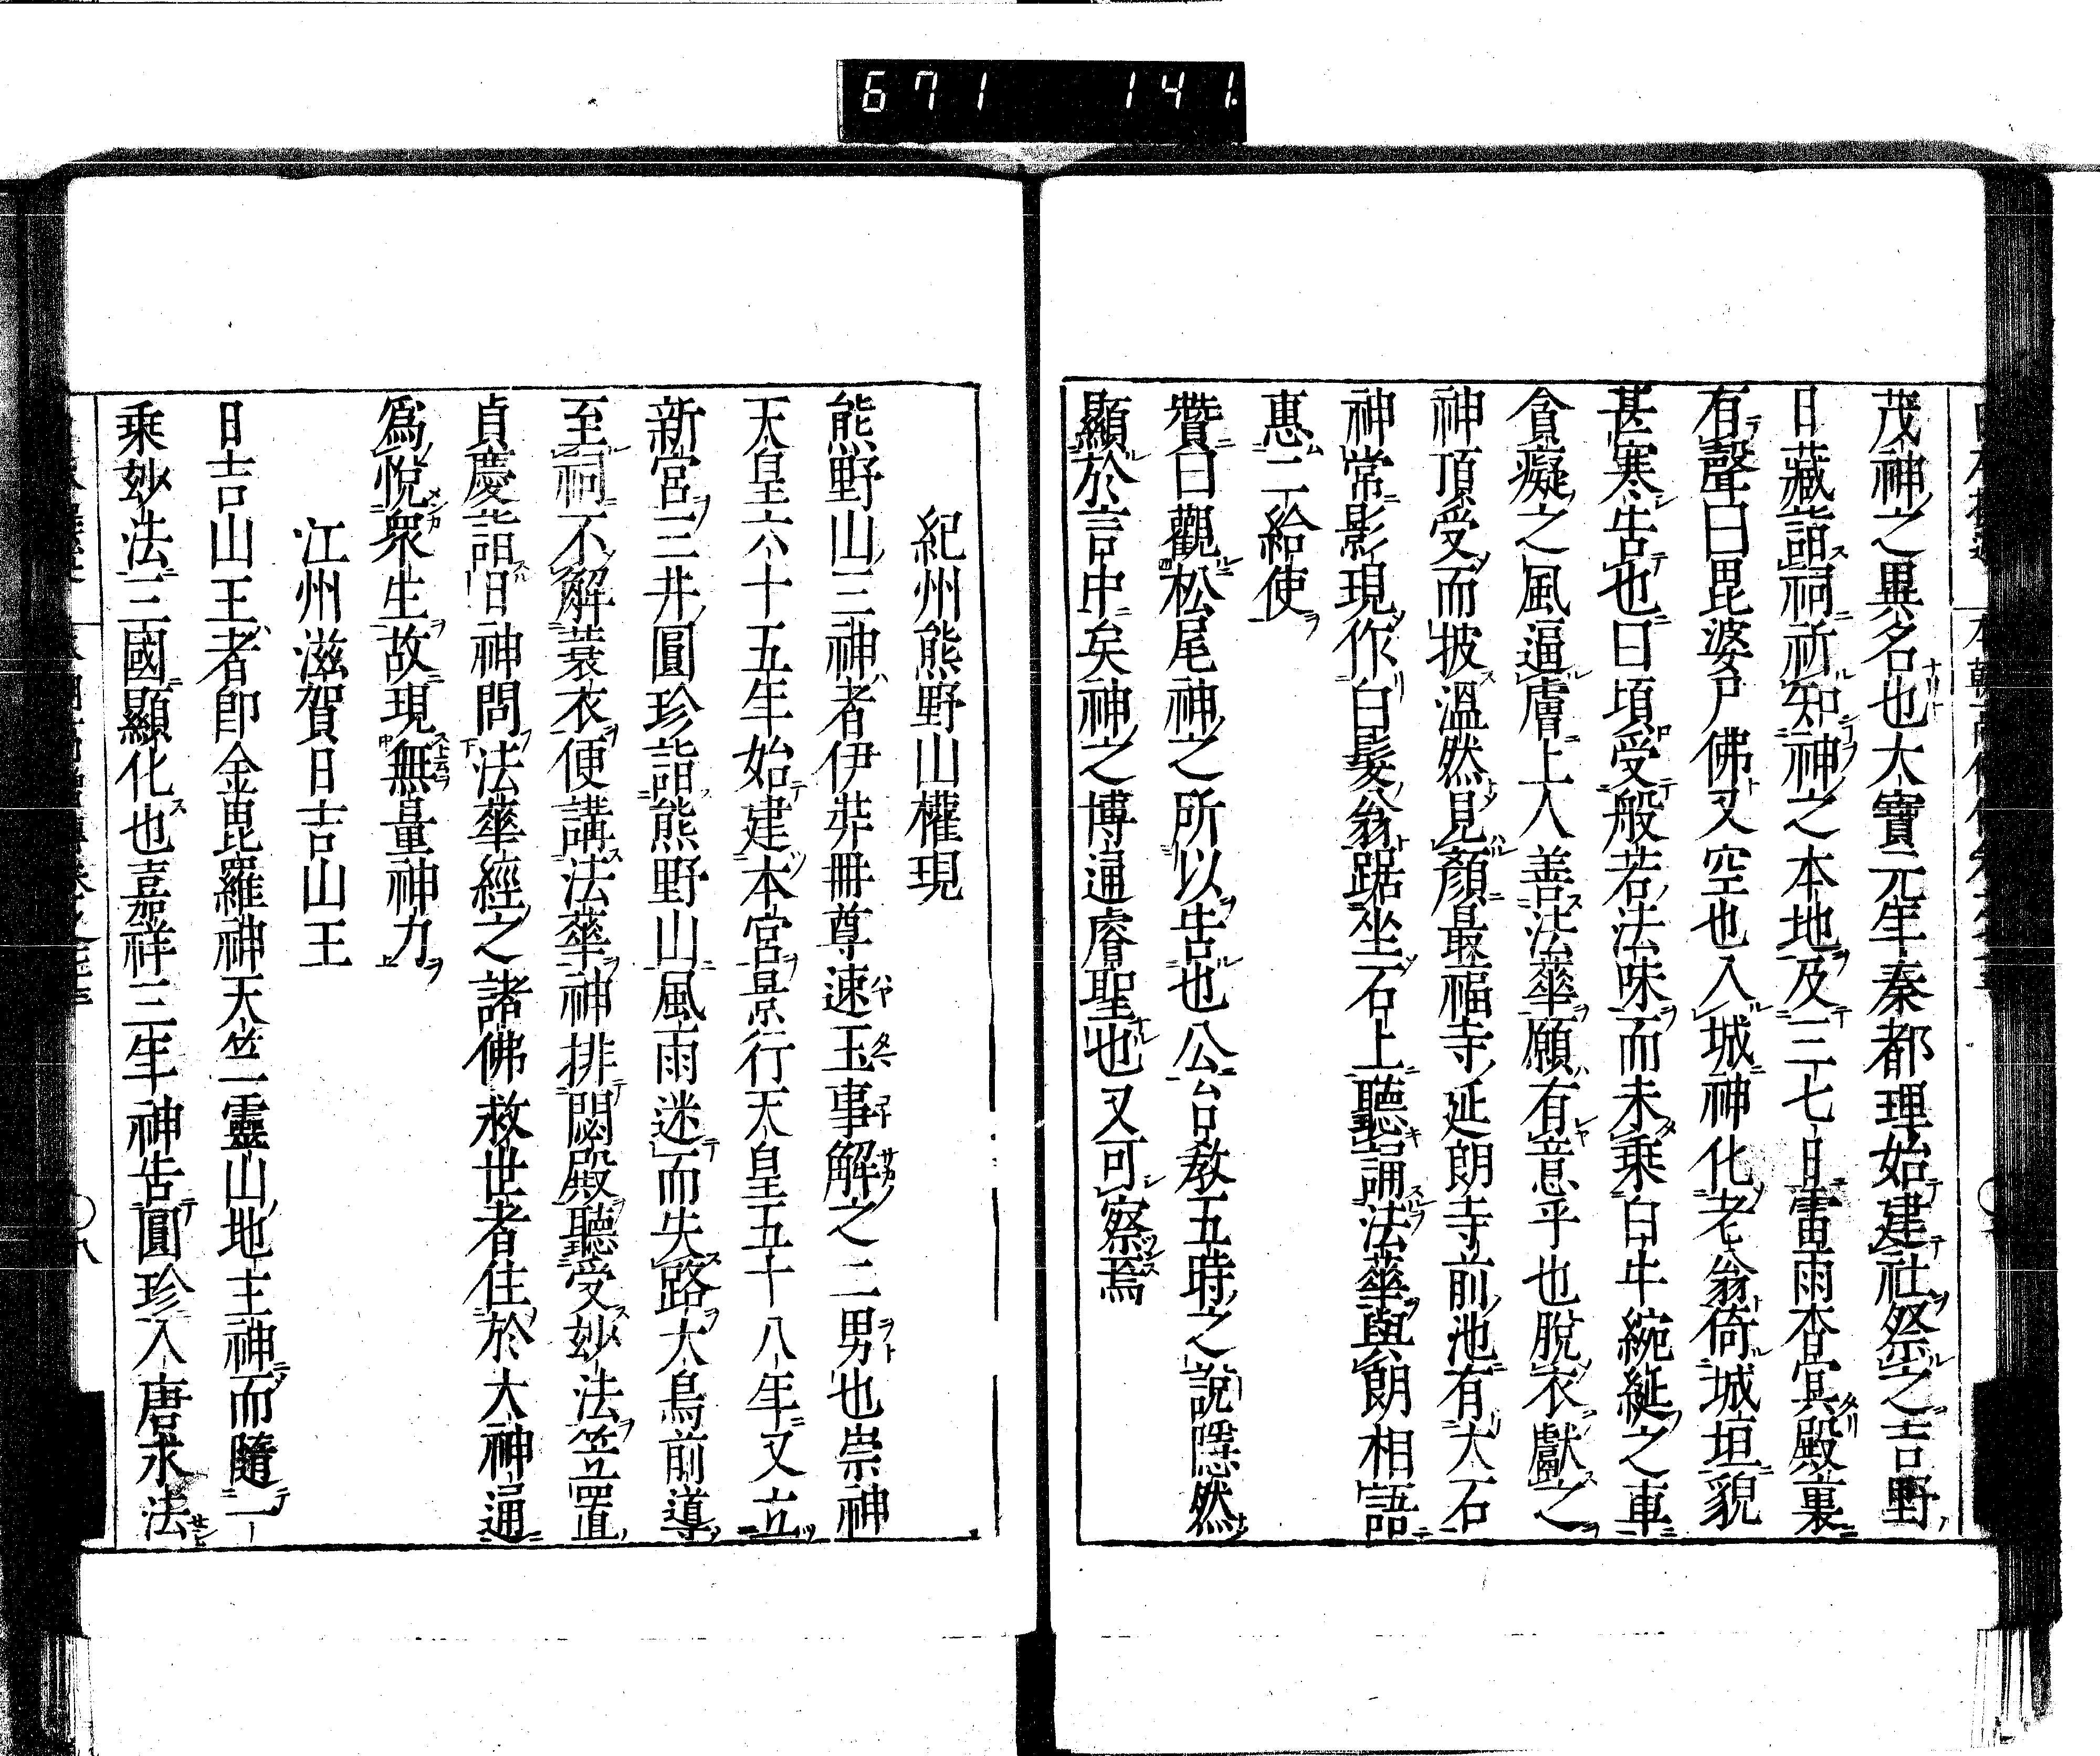 671 141
茂神之異名也大寶元年秦都理始建社祭之吉野
日藏詣祠祈知神之本地及三七日雷雨杳冥殿裏
有聲曰毘婆尸佛又空也入城神化老翁倚城垣貌
甚寒告也曰頃受般若法味而未乘白牛綩綖之車
貪癡之風逼膚上人善法華願有意乎也脫衣獻之
神頂受而披溫然見顏最福寺延朗寺前池有大石
神常影現作白髮翁踞坐石上聽誦法華與朗相語
惠二給使
贊曰觀松尾神之所以告也公台教五時之說隱然
顯於言中矣神之博通睿聖也又可察焉
紀州熊野山權現
熊野山三神者伊弉冊尊速玉事解之二男也崇神
天皇六十五年始建本宮景行天皇五十八年又立
新宮三井圓珍詣熊野山風雨迷而失路大鳥前導
至祠不解蓑衣便講法華神排閟殿聽受妙法笠置
貞慶詣日神問法華經之諸佛救世者住於大神通
爲悅衆生故現無量神力
江州滋賀日吉山王
日吉山王者卽金毘羅神天竺靈山地主神而隨一
乘妙法三國顯化也嘉祥三年神告圓珍入唐求法
八